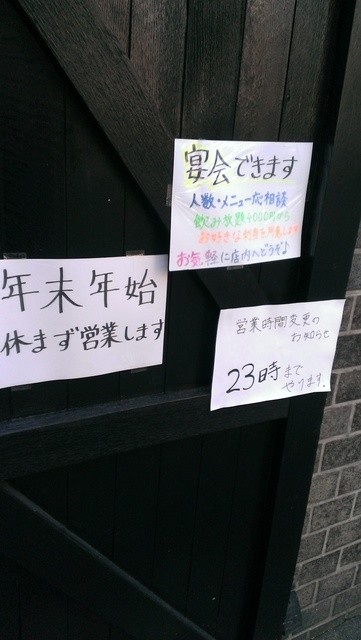 宴会できます
人数・メニュー応相談
飲み放題4000円から
お好きな料理を用意します
お気軽に店内へどうぞ♪
年末年始
休まず営業します
営業時間変更の
お知らせ
23時まで
やります。